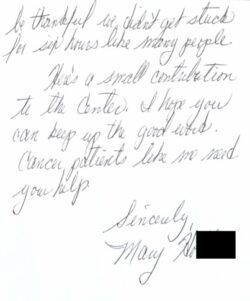 be thankful we didn't get stuck
for six hours like many people.
Here's a small contribution
to the Center. I hope you
can keep up the good work.
Cancer patients like me need
your help.
Sincerely,
Mary